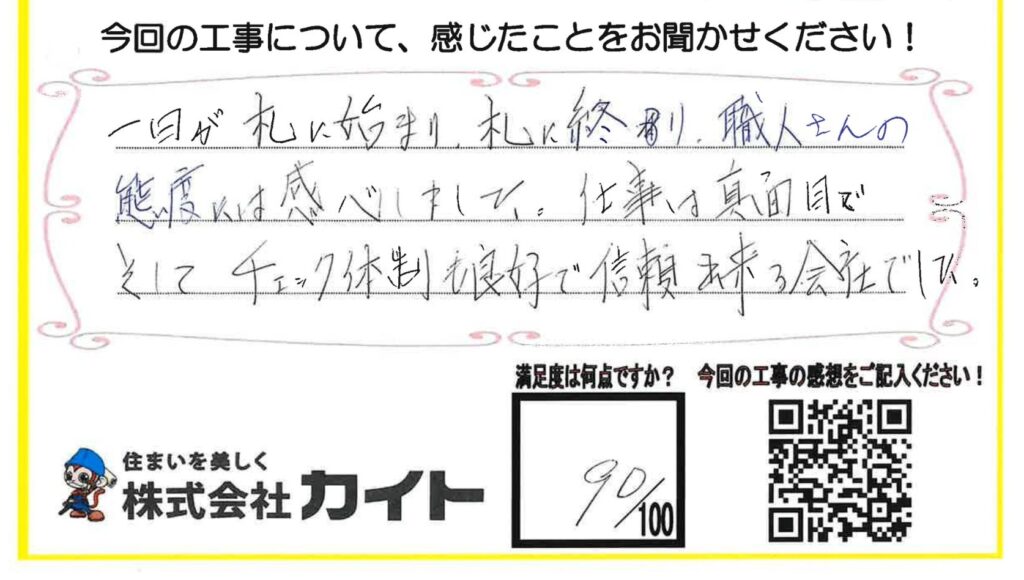 今回の工事について、感じたことをお聞かせください！
一日が札に始まり、札に終り、職人さんの
態度には感心しました。仕事は真面目で
そして チェック体制も良好で信頼出来る会社でした。
満足度は何点ですか？
90/100
今回の工事の感想をご記入ください！
住まいを美しく
株式会社カイト